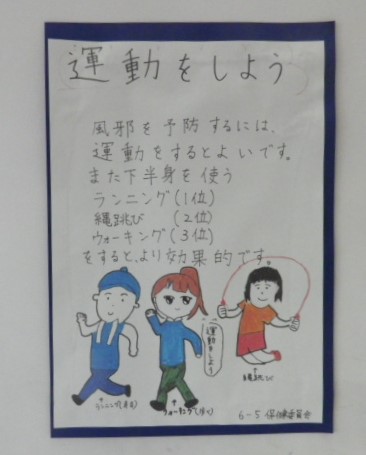 運動をしよう
風邪を予防するには、
運動をするとよいです。
また下半身を使う
ランニング(1位)
縄跳び (2位)
ウォーキング(3位)
をすると、より効果的です。
運動をしよう
↑
ランニング(走る)
↑
ウォーキング(歩く)
↑
縄跳び
6-5 保健委員会